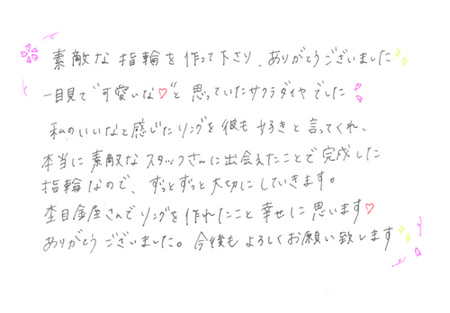 素敵な指輪を作って下さり、ありがとうございました
一目見て"可愛いな♡"と思っていたサクラダイヤでした
私のいいなと感じたリングを彼も好きと言ってくれ、
本当に素敵なスタッフさんに出会えたことで完成した
指輪なので、ずっとずっと大切にしていきます。
杢目金屋さんでリングを作れたこと幸せに思います♡
ありがとうございました。今後もよろしくお願い致します